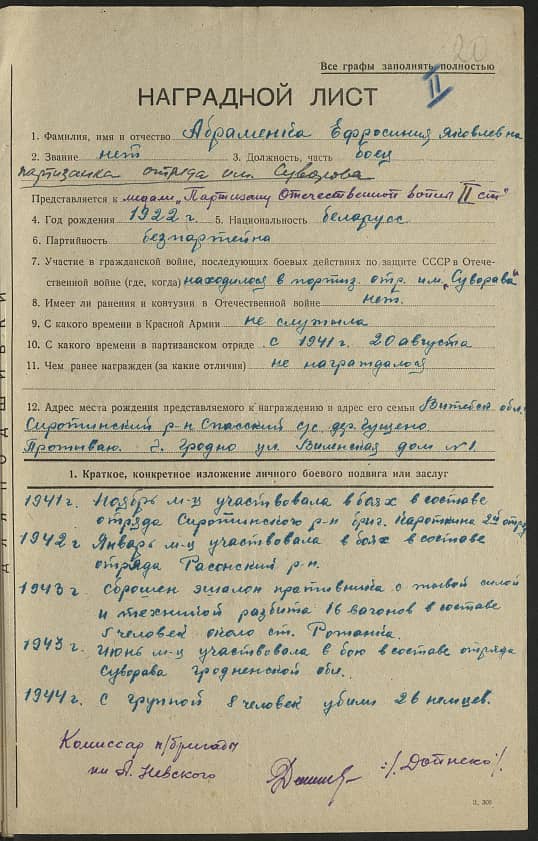 20
Все графы заполнять полностью
II
НАГРАДНОЙ ЛИСТ
1. Фамилия, имя и отчество Абраменка Ефросиния Яковлевна
2. Звание нет 3. Должность, часть боец
партизанка отряда им. Суворова
Представляется к медали „Партизану Отечественной войны II ст"
4. Год рождения 1922 г. 5. Национальность беларусс
6. Партийность безпартейна
7. Участие в гражданской войне, последующих боевых действиях по защите СССР в Отече-
ственной войне (где, когда) находилося в портиз. отр. им. „Суворава"
8. Имеет ли ранения и контузии в Отечественной войне нет.
9. С какого времени в Красной Армии не служыла
10. С какого времени в партизанском отряде с 1941 г. 20 августа
11. Чем ранее награжден (за какие отличия) не награждалося
12. Адрес места рождения представляемого к награждению и адрес его семьи Витебск обл.
Сиротинский р-н Спасский с/с. дер. Гущено
Протываю. г. Гродно ул. Виленская дом №1.
1. Краткое, конкретное изложение личного боевого подвига или заслуг
1941 г. Ноябрь м-ц участвовала в боях в составе
отряда Сиротинского р-н бриг. Кароткина 2й отряд
1942 г Январь м-ц участвовала в боях в составе
отряда Расонский р-н.
1943 г. сброшен эшалон пративника с жывой силой
и технитой разбита 16 вагонов в составе
5 человек около ст. Ротанка.
1943 г. Июнь м-ц участвовала в бою в составе отряда
Суворава гродненской обл.
1944 г. С групой 8 человек убили 26 немцев.
Комиссар п/бригады
им А. Невского
:/. Дойнеко /.
ДЛЯ ПОДШИВКИ